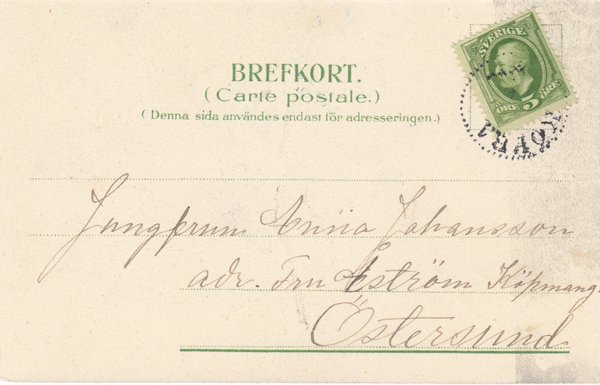 BREFKORT.
(Carte postale.)
(Denna sida användes endast för adresseringen.)
SVERIGE
ÖRE 5 ÖRE
Jungfrun Anna Johansson
adr. Fru Åström Köpmang.
Östersund